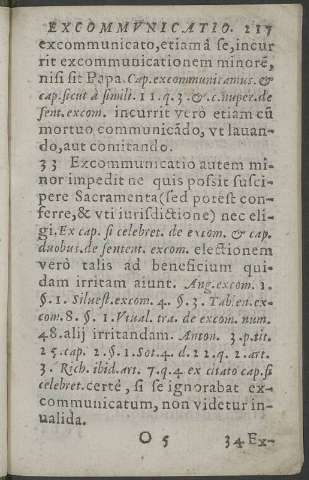 EXCOMMVNICATIO. 217
excommunicato, etiam â se, incur
rit excommunicationem minorẽ,
nisi sit Papa. Cap. excommunicamus. &
cap. sicut à simili. 11. q. 3. & c. nuper. de
sent. excom. incurrit verò etiam cũ
mortuo communicãdo, vt lauan-
do, aut comitando.
33 Excommunicatio autem mi-
nor impedit ne quis possit susci-
pere Sacramenta (sed potest con-
ferre, & vti iurisdictione) nec eli-
gi. Ex cap. si celebret. de excom. & cap.
duobus. de sentent. excom. electionem
verò talis ad beneficium qui-
dam irritam aiunt. Ang. excom. 1.
§. 1. Siluest. excom. 4. §. 3. Tabien. ex-
com. 8. §. 1. Viual. tra. de excom. num.
48. alij irritandam. Anton. 3. p. tit.
25. cap. 2. §. 1. Sot. 4. d. 22. q. 2. art.
3. Rich. ibid. art. 7. q. 4 ex citato cap. si
celebret. certè, si se ignorabat ex-
communicatum, non videtur in-
ualida.
O 5 34 Ex-